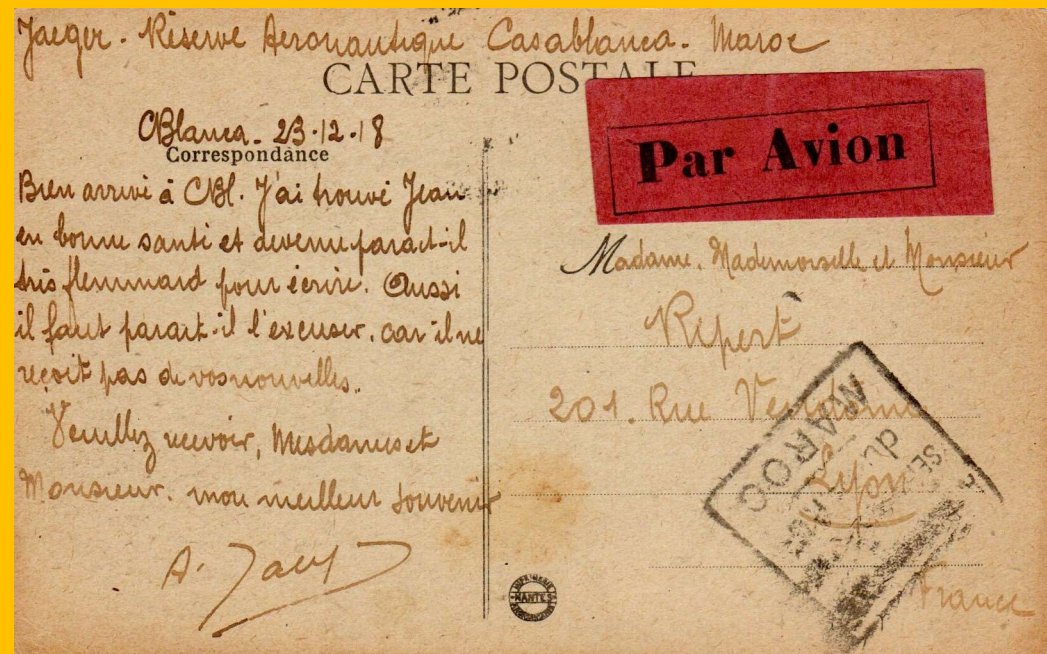 Jaeger - Réserve Aéronautique Casablanca - Maroc
CARTE POSTALE
CBlanca - 23-12-18
Correspondance
Bien arrivé à CBl. J'ai trouvé Jean
en bonne santé et devenu parait-il
très flemmard pour écrire. Aussi
il faut parait-il l'excuser, car il ne
reçoit pas de vos nouvelles.
Veuillez recevoir, Mesdames et
Monsieur, mon meilleur souvenir
Par Avion
Madame, Mademoiselle et Monsieur
Ripert
201. Rue Vendôme
Lyon
France
du
MAROC
NANTES